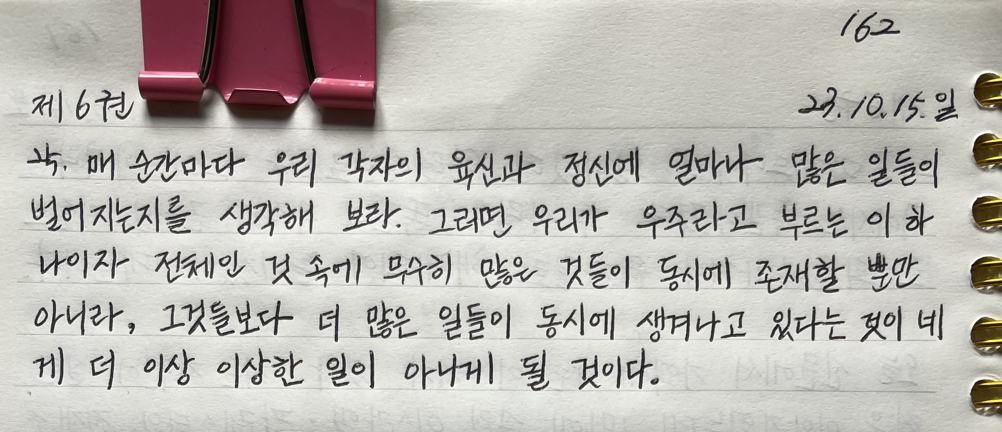 162
제6권 23.10.15.일
25. 매 순간마다 우리 각자의 육신과 정신에 얼마나 많은 일들이
벌어지는지를 생각해 보라. 그러면 우리가 우주라고 부르는 이 하
나이자 전체인 것 속에 무수히 많은 것들이 동시에 존재할 뿐만
아니라, 그것들보다 더 많은 일들이 동시에 생겨나고 있다는 것이 네
게 더 이상 이상한 일이 아니게 될 것이다.